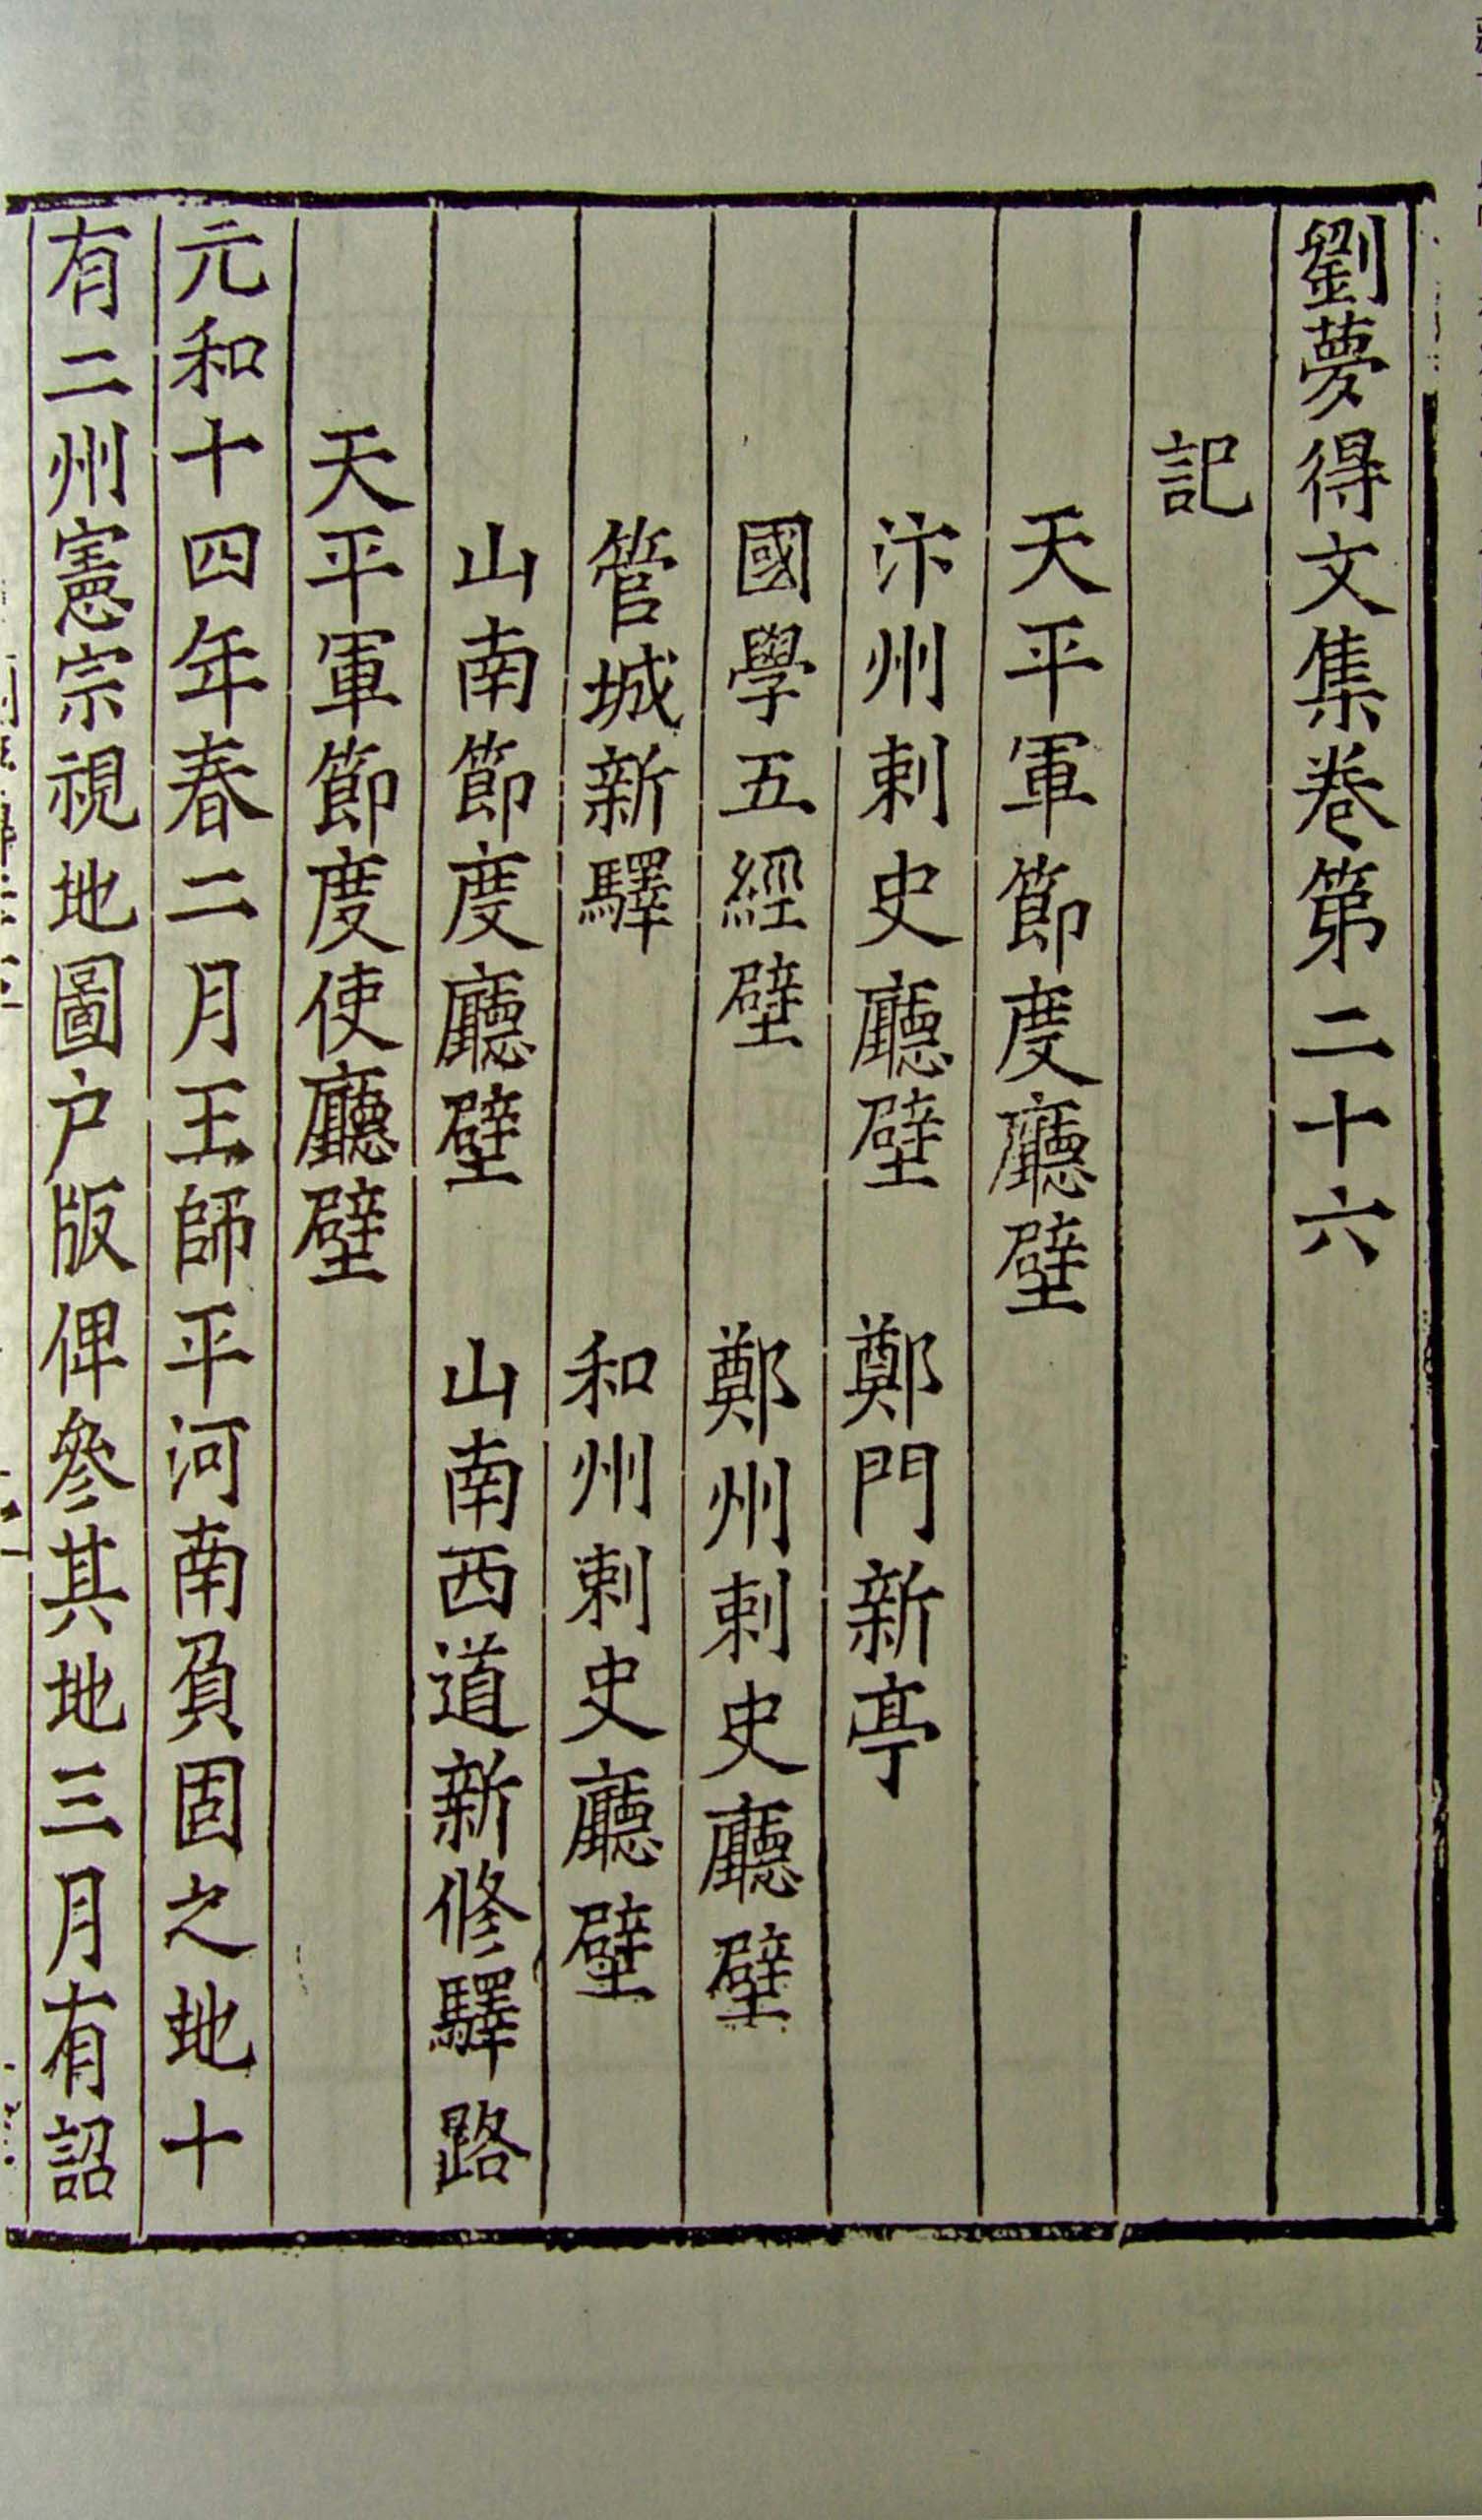 劉夢得文集卷第二十六
記
天平軍節度廳壁
汴州刺史廳壁　鄭門新亭
國學五經壁　鄭州刺史廳壁
管城新驛　和州刺史廳壁
山南節度廳壁　山南西道新修驛路
天平軍節度使廳壁
元和十四年春二月王師平河南負固之地十
有二州憲宗視地圖户版俾叅其地三月有詔